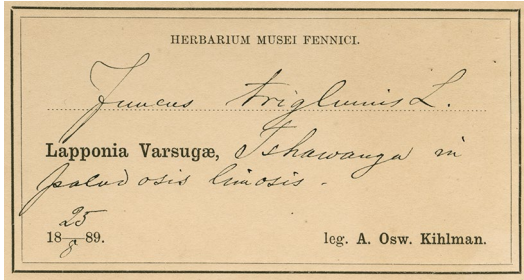 HERBARIUM MUSEI FENNICI.
Juncus triglumis L.
Lapponia Varsugæ, Tshawanga in
paludosis limosis.
25
18 — 89.
8
leg. A. Osw. Kihlman.